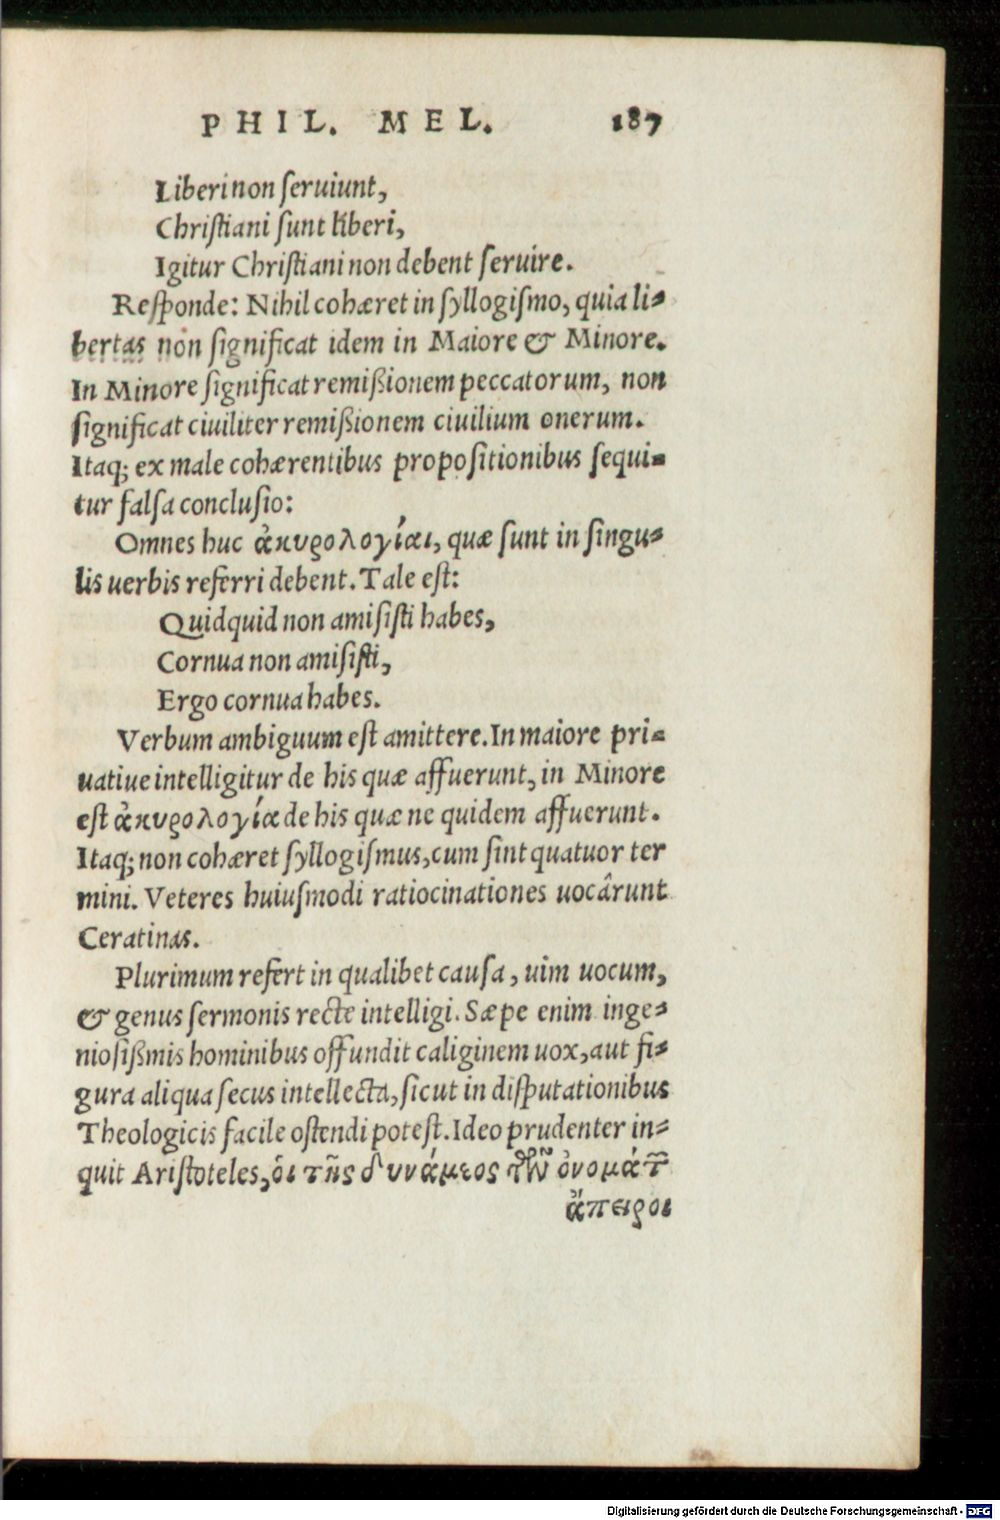 PHIL. MEL. 187
Liberi non ſeruiunt,
Chriſtiani ſunt liberi,
Igitur Chriſtiani non debent ſeruire.
Reſponde: Nihil cohæret in ſyllogiſmo, quia li-
bertas non ſignificat idem in Maiore & Minore.
In Minore ſignificat remißionem peccatorum, non
ſignificat ciuiliter remißionem ciuilium onerum.
Itaq; ex male cohærentibus propoſitionibus ſequi-
tur falſa concluſio:
Omnes huc ἀκυρολογίαι, quæ ſunt in ſingu-
lis uerbis referri debent. Tale eſt:
Quidquid non amiſiſti habes,
Cornua non amiſiſti,
Ergo cornua habes.
Verbum ambiguum eſt amittere. In maiore pri-
uatiue intelligitur de his quæ affuerunt, in Minore
eſt ἀκυρολογία de his quæ ne quidem affuerunt.
Itaq; non cohæret ſyllogiſmus, cum ſint quatuor ter
mini. Veteres huiuſmodi ratiocinationes uocârunt
Ceratinas.
Plurimum refert in qualibet cauſa, uim uocum,
& genus ſermonis recte intelligi. Sæpe enim inge-
nioſißmis hominibus offundit caliginem uox, aut fi-
gura aliqua ſecus intellecta, ſicut in diſputationibus
Theologicis facile oſtendi poteſt. Ideo prudenter in-
quit Ariſtoteles, ὁι τῆς δυνάμεος τῶν ὀνομάτ
ἄπειροι
Digitalisierung gefördert durch die Deutsche Forschungsgemeinschaft - DFG